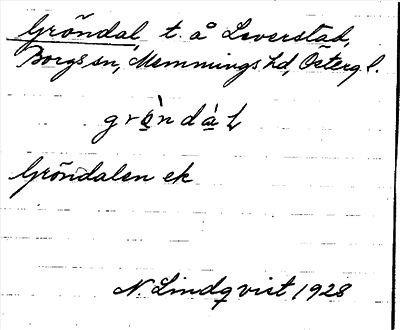 Gröndal, t. å Leverstad,
Borgs sn, Memmings hd, Österg l.
grö̀ndàɫ
Gröndalen ek
N. Lindqvist 1928